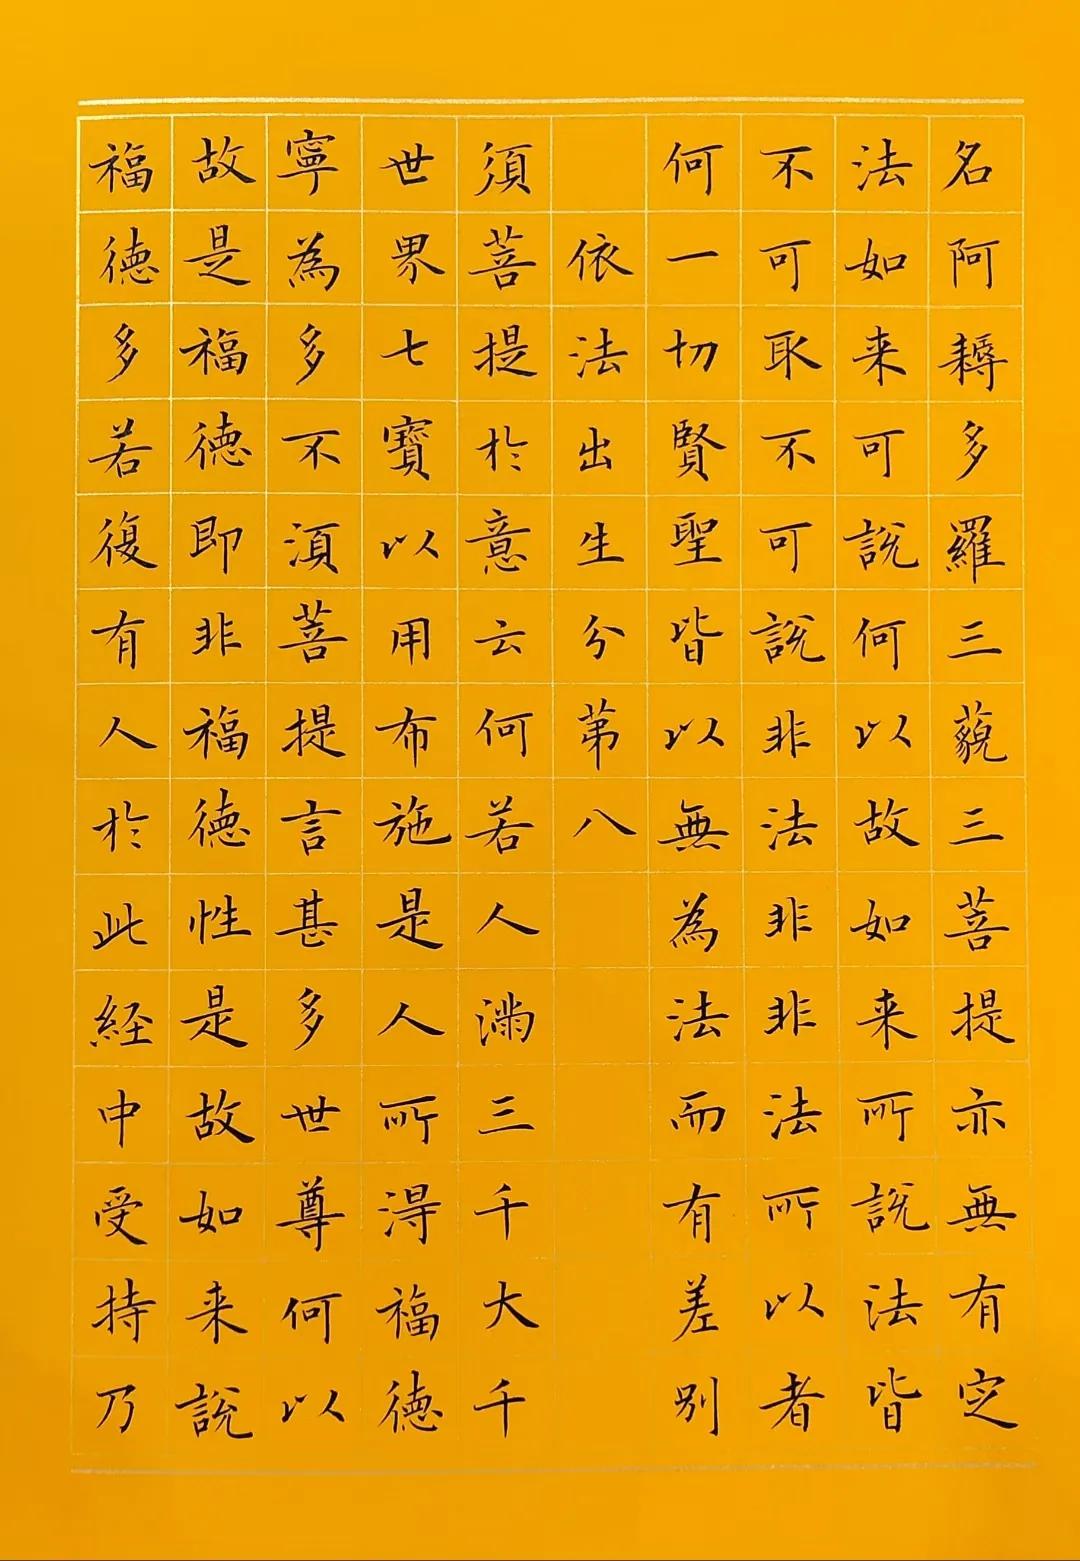 名阿耨多羅三藐三菩提亦無有定
法如来可說何以故如来所說法皆
不可取不可說非法非非法所以者
何一切賢聖皆以無為法而有差別
依法出生分苐八
須菩提於意云何若人満三千大千
世界七寶以用布施是人所淂福德
寧為多不湏菩提言甚多世尊何以
故是福德即非福德性是故如来說
福德多若復有人於此経中受持乃